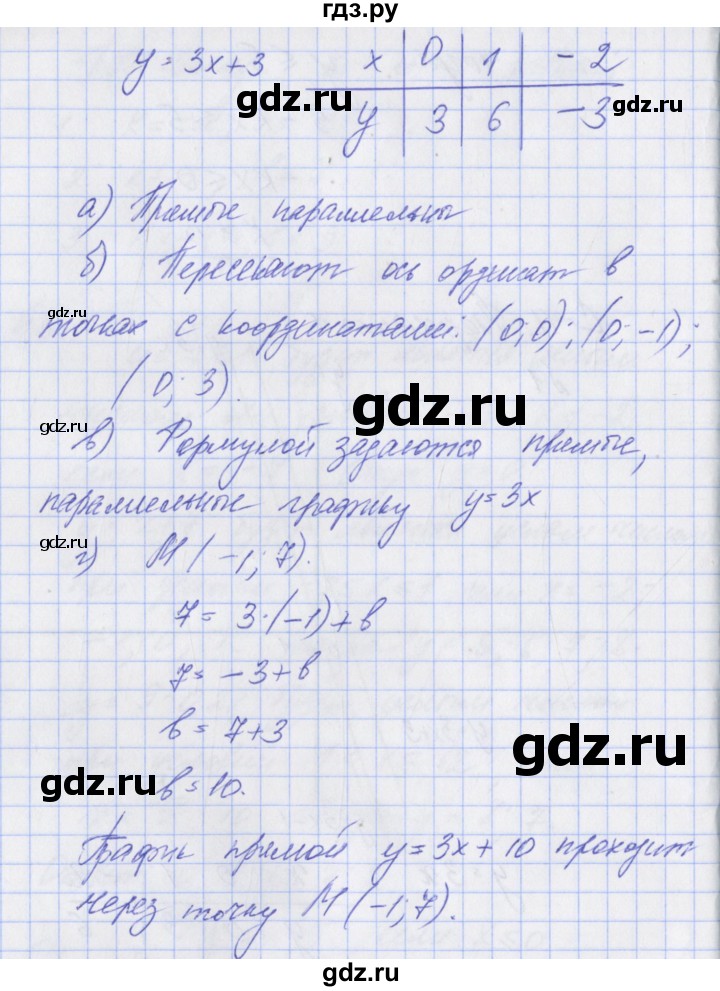 гдз.ру
y = 3x+3 x 0 1 -2
y 3 6 -3
gdz.ru
gdz.ru
а) Прямые параллельны
б) Пересекают ось ординат в
gdz.ru
точках с координатами: (0;0); (0;-1);
(0; 3).
gdz.ru
gdz.ru
в) Формулой задаются прямые,
параллельные графику y=3x
gdz.ru
г) M(-1; 7).
7 = 3·(-1)+в
7 = -3+в
в = 7+3
gdz.ru
gdz.ru
в = 10.
График прямой y=3x+10 проходит
через точку M(-1;7).
gdz.ru